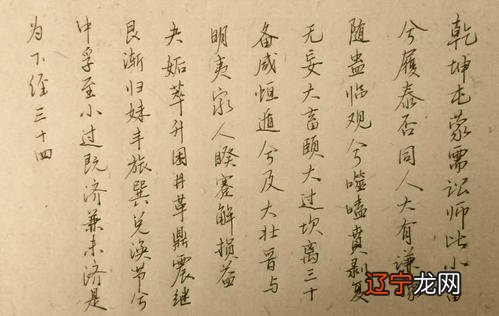 乾坤屯蒙需讼师比小畜
兮履泰否同人大有谦豫
随蛊临观兮噬嗑贲剥复
无妄大畜颐大过坎离三十
备咸恒遁兮及大壮晋与
明夷家人睽蹇解损益
夬姤萃升困井革鼎震继
艮渐归妹丰旅巽兑涣节兮
中孚至小过既济兼未济是
为下经三十四
辽宁龙网